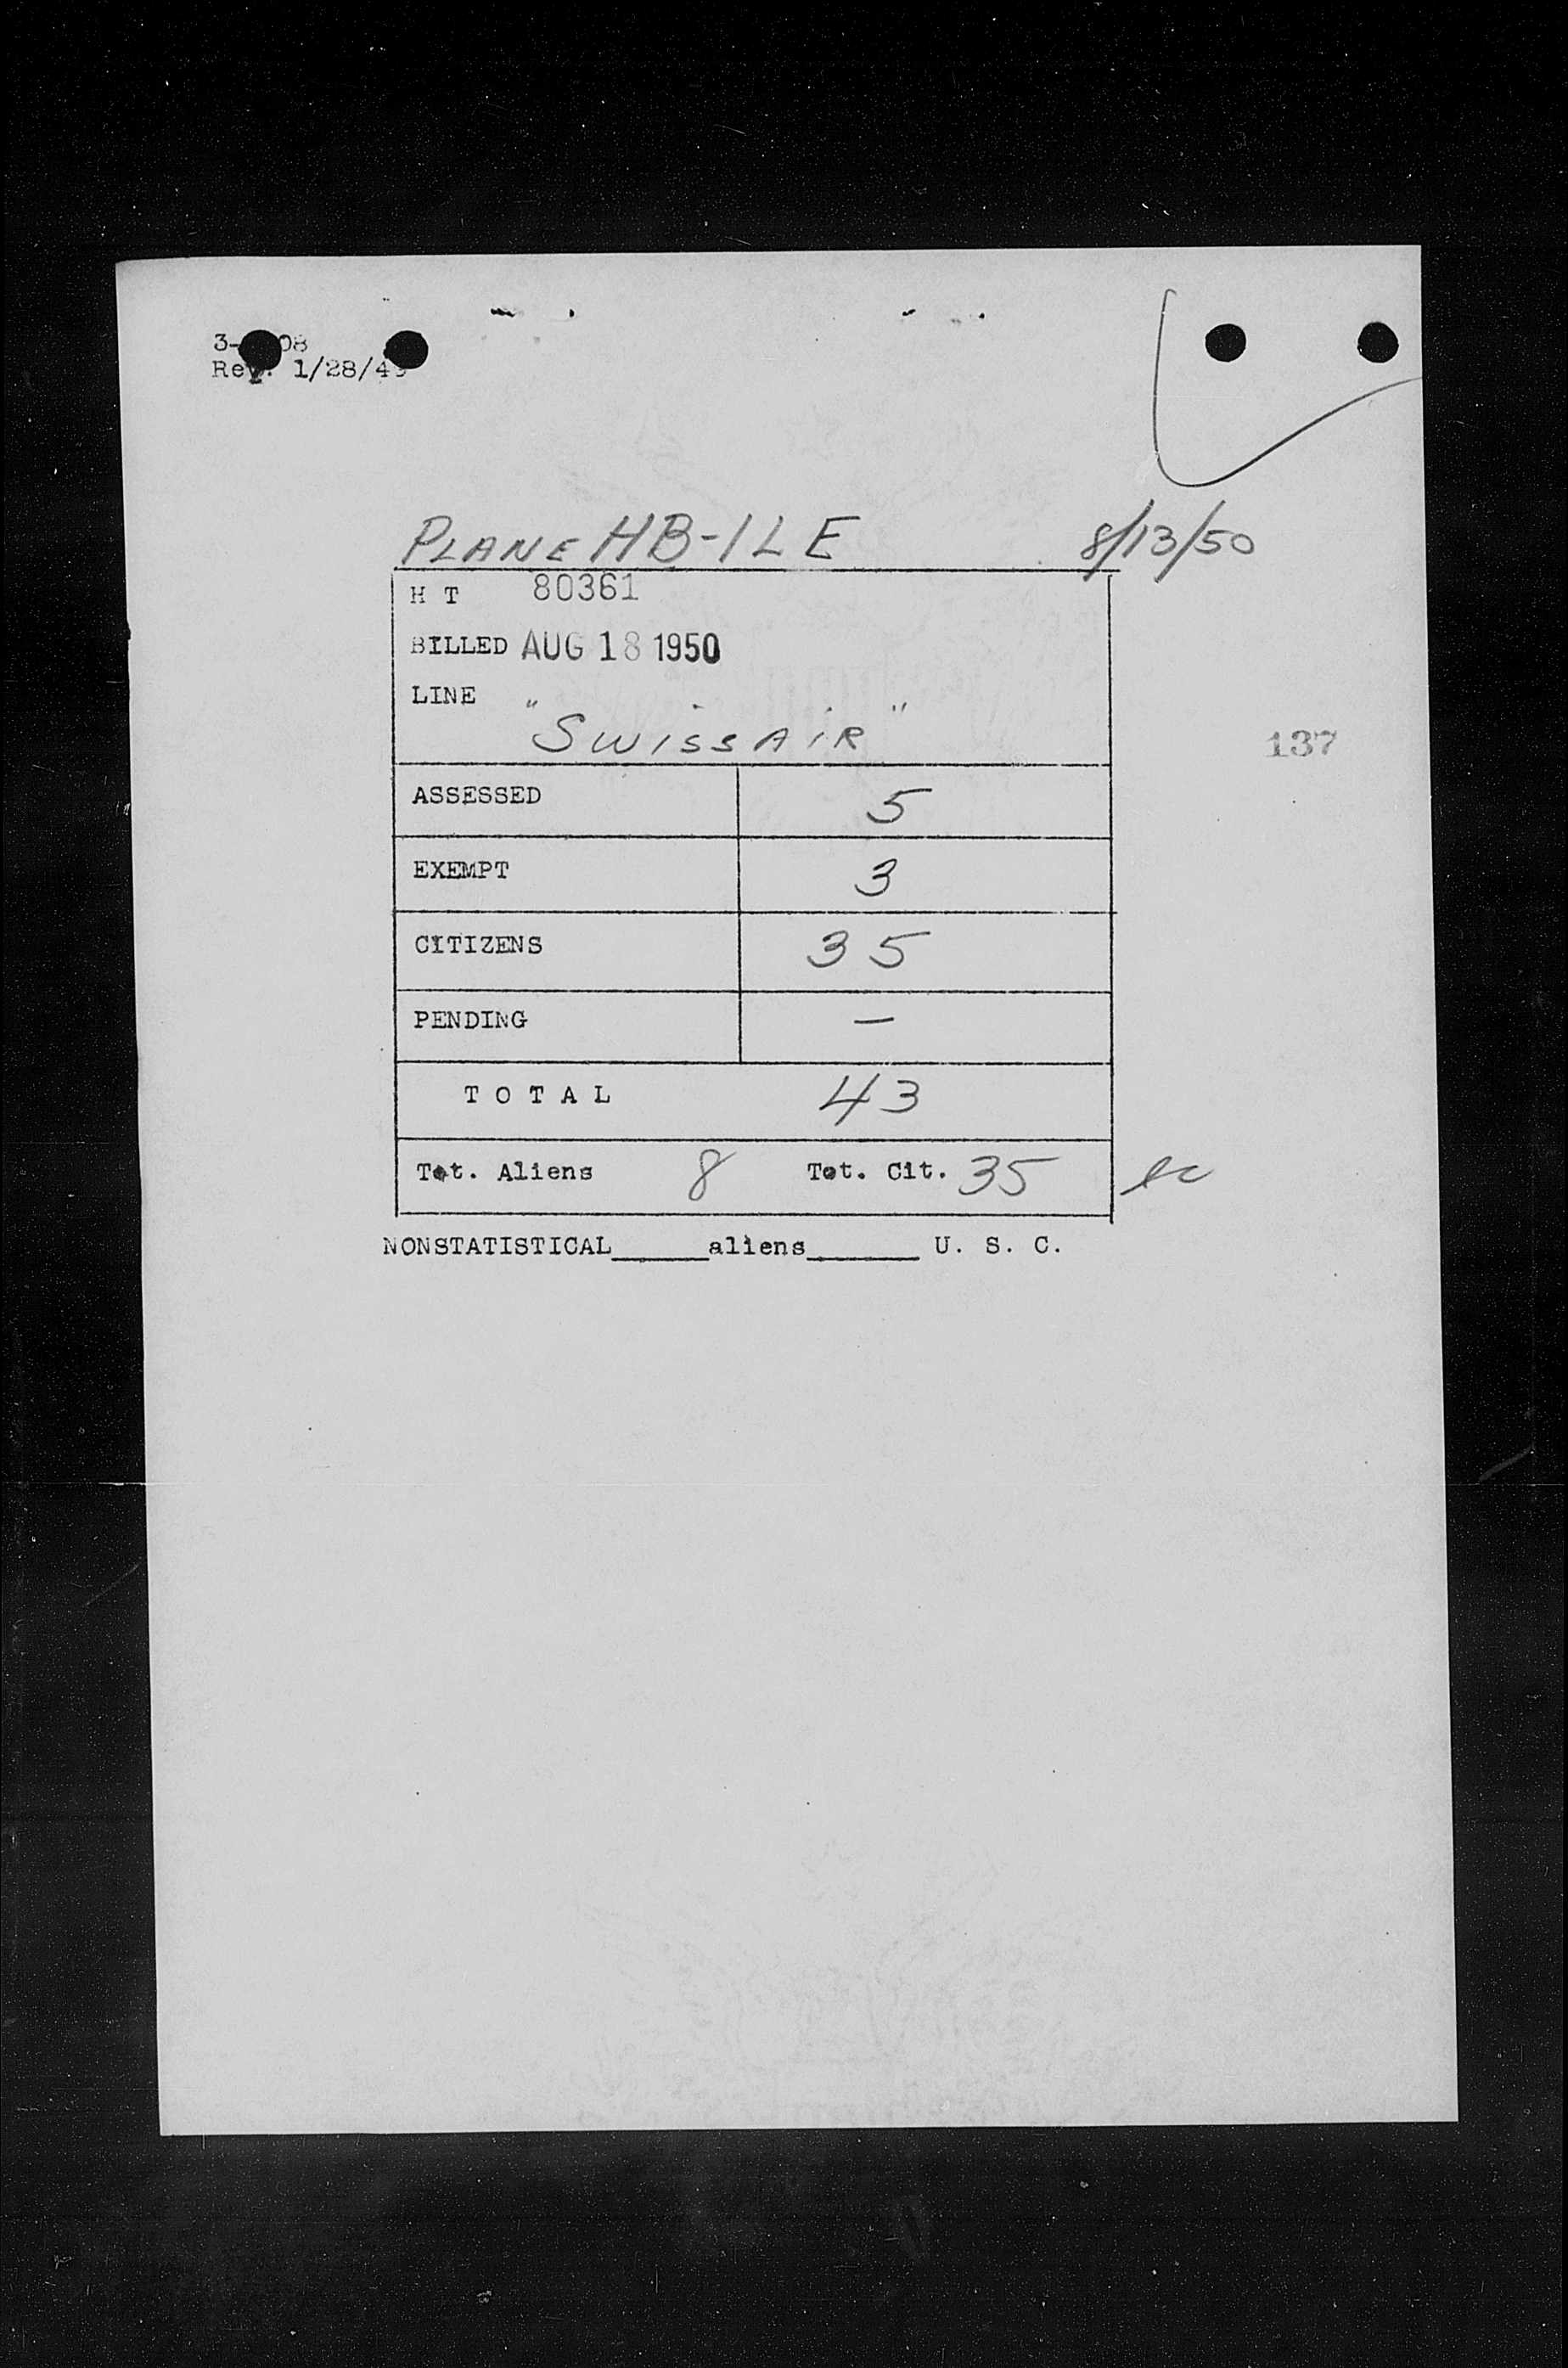 Rev. 1/28/49
PLANE HB-ILE 8/13/50
H T 80361
BILLED AUG 18 1950
LINE
"SWISSAIR"
137
ASSESSED 5
EXEMPT 3
CITIZENS 35
PENDING —
T O T A L 43
Tot. Aliens 8 Tot. Cit. 35
NONSTATISTICAL______aliens_______ U. S. C.